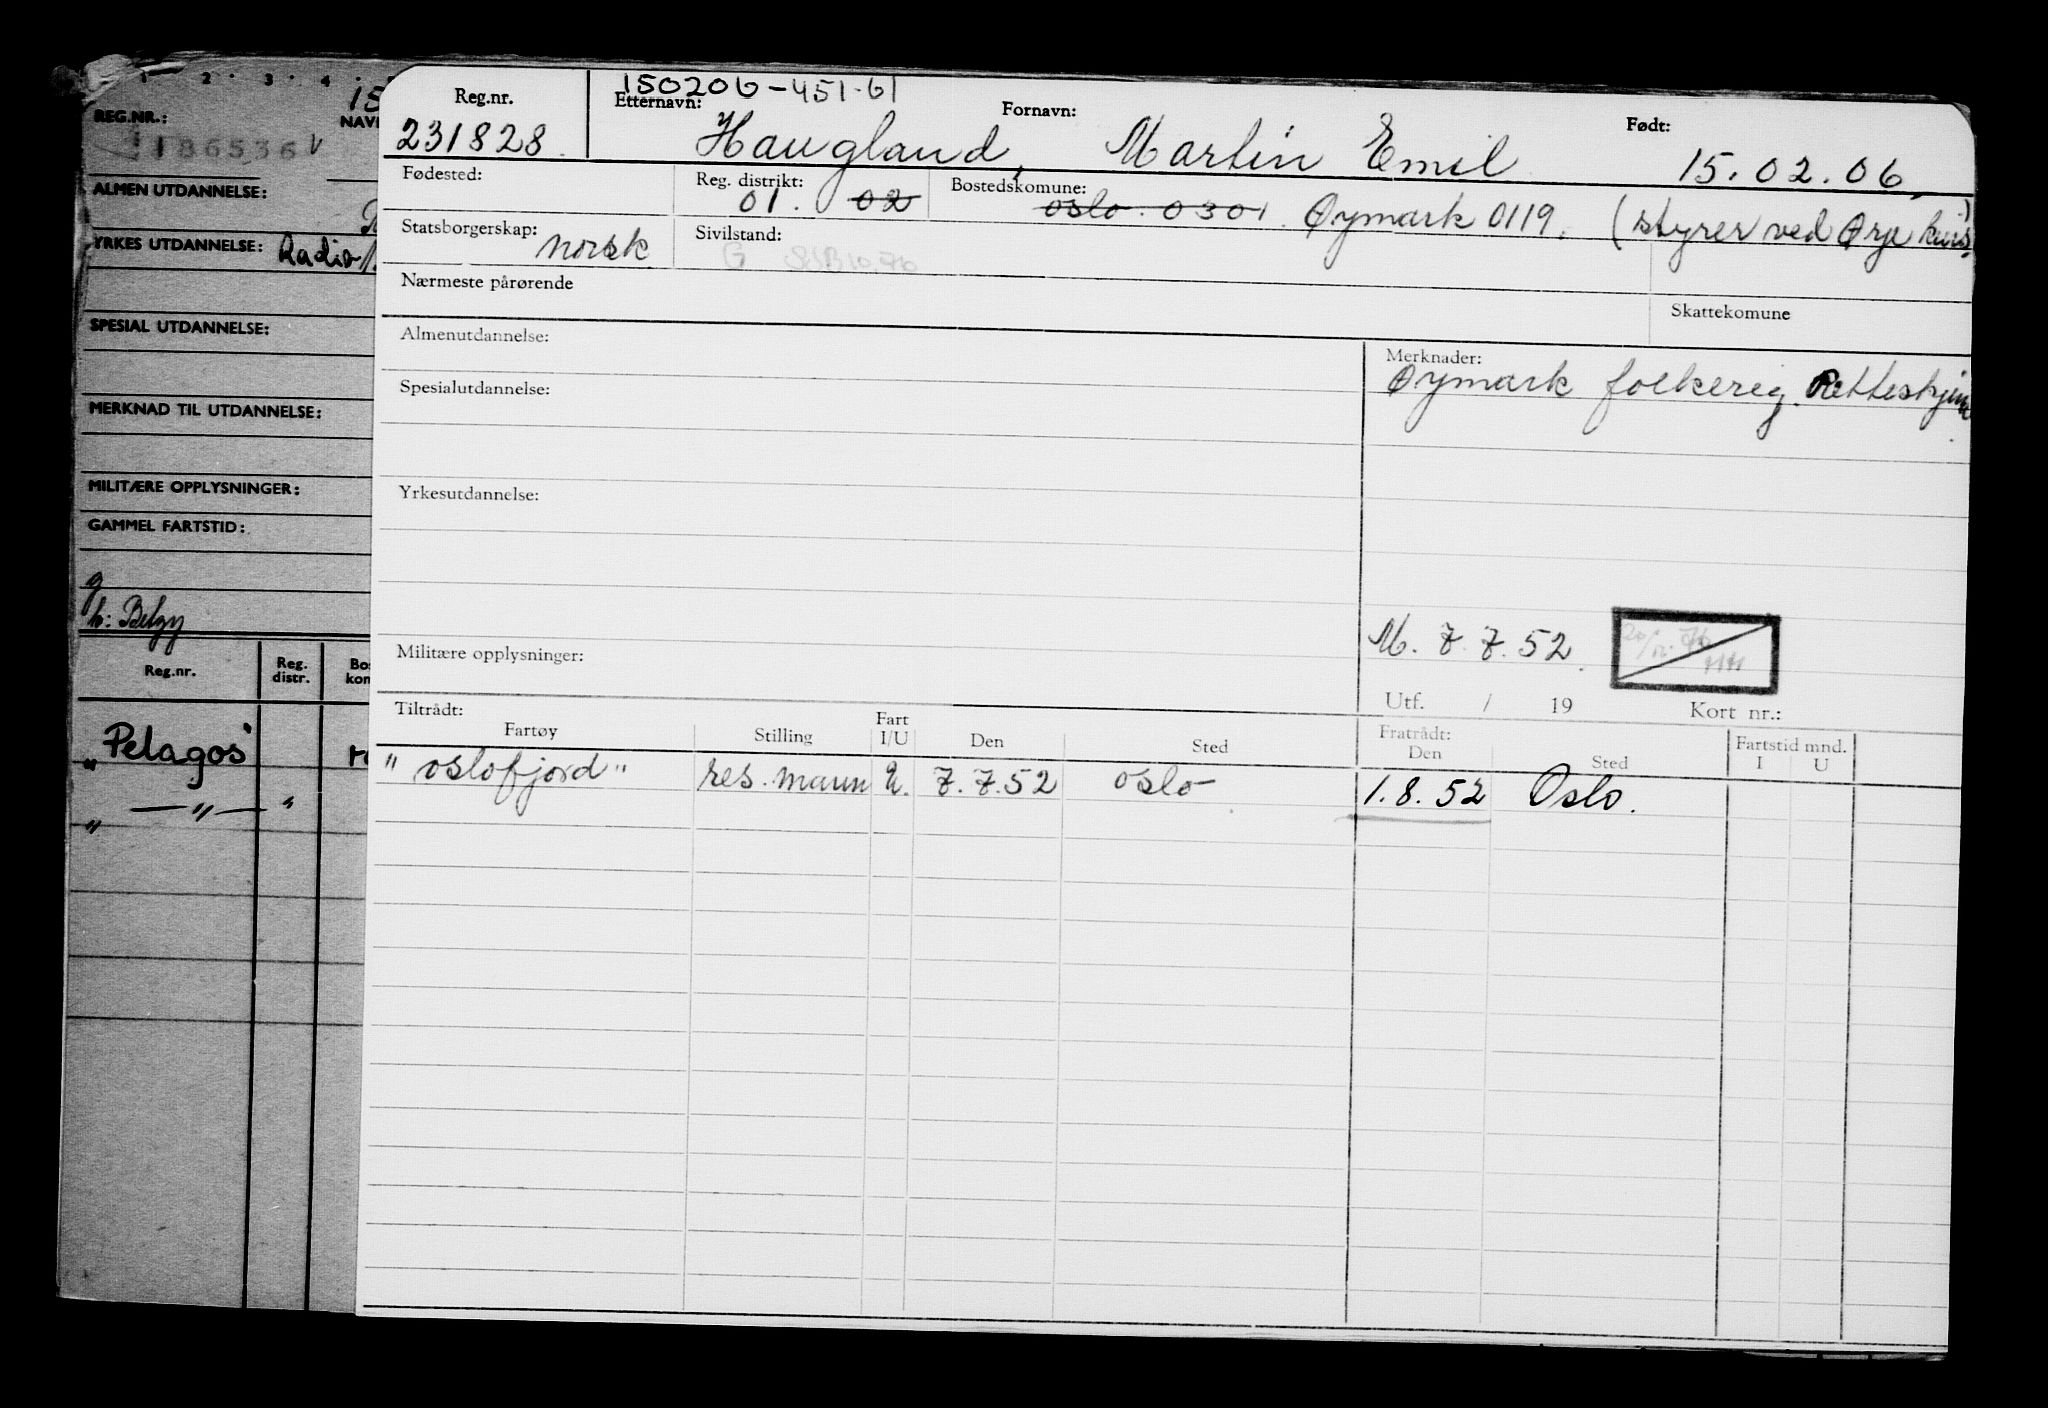 1 2 3 4
REG.NR.: 15
NAV
186536 V
ALMEN UTDANNELSE:
YRKES UTDANNELSE: Radio
SPESIAL UTDANNELSE:
MERKNAD TIL UTDANNELSE:
MILITÆRE OPPLYSNINGER:
GAMMEL FARTSTID:
h: Betzy
Reg.nr. Reg. distr. Bos kom
"Pelagos"
" — " — "
150206-451-61
Reg.nr. Etternavn: Fornavn: Født:
231828. Haugland, Martin Emil 15.02.06.
Fødested: Reg. distrikt: Bostedskomune:
01. 02 oslo. 0301. Øymark 0119. (styrer ved Ørje kurs.)
Statsborgerskap: norsk Sivilstand: G
Nærmeste pårørende
Skattekomune
Almenutdannelse: Merknader:
Øymark folkereg.
Spesialutdannelse:
Yrkesutdannelse:
M. 7.7.52.
Militære opplysninger:
Utf. / 19 Kort nr.:
Tiltrådt: Fratrådt:
Fartøy Stilling Fart I/U Den Sted Den Sted Fartstid mnd. I U
"oslofjord" res. mann U. 7.7.52 oslo 1.8.52 Oslo.